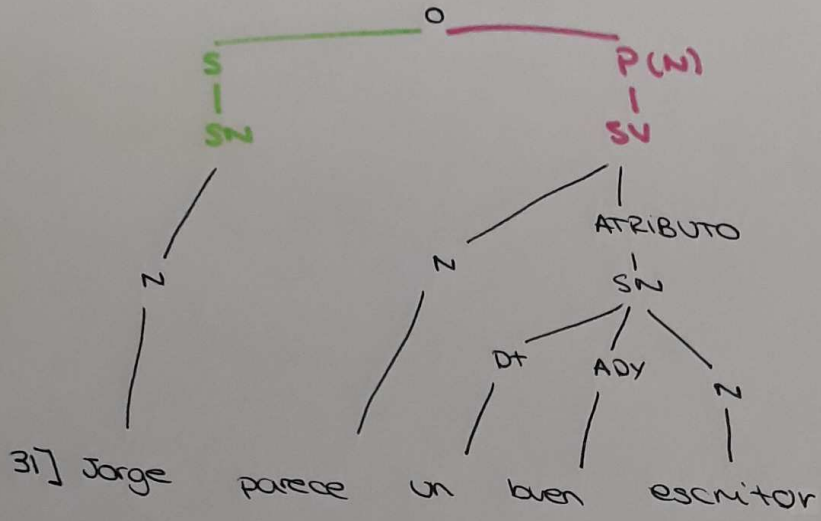 O
S P(N)
SN SV
ATRIBUTO
N N SN
Dt ADY N
31] Jorge parece un buen escritor